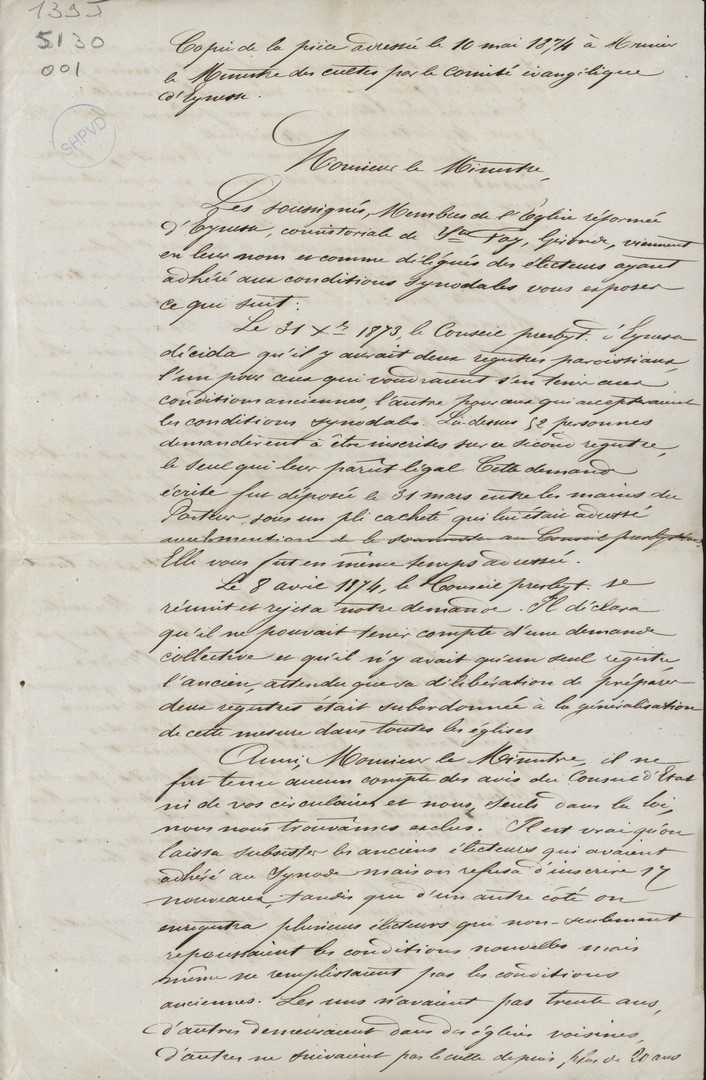 1395
5130
001
SHPVD
Copie de la pièce adressée le 10 mai 1874 à Monsieur
le Ministre des cultes par le Comité évangélique
d'Eynesse.
Monsieur le Ministre,
Les soussignés, Membres de l'Eglise réformée
d'Eynesse, consistoriale de Ste Foy, Gironde, viennent
en leur nom et comme délégués des électeurs ayant
adhéré aux conditions synodales vous exposer
ce qui suit:
Le 31 Xbre 1873, le Conseil presbyt. d'Eynesse
décida qu'il y aurait deux registres paroissiaux,
l'un pour ceux qui voudraient s'en tenir aux
conditions anciennes, l'autre pour ceux qui accepteraient
les conditions synodales. Là-dessus 52 personnes
demandèrent à être inscrites sur ce second registre,
le seul qui leur parût légal. Cette demande
écrite fut déposée le 31 mars entre les mains du
Pasteur sous un pli cacheté qui lui était adressé
avec mention de le soumettre au Conseil presbytéral.
Elle vous fut en même temps adressée.
Le 8 avril 1874, le Conseil presbyt. se
réunit et rejeta notre demande. Il déclara
qu'il ne pouvait tenir compte d'une demande
collective et qu'il n'y avait qu'un seul registre
l'ancien, attendu que sa délibération de préparer
deux registres était subordonnée à la généralisation
de cette mesure dans toutes les églises
Ainsi, Monsieur le Ministre, il ne
fut tenu aucun compte des avis du Conseil d'Etat
ni de vos circulaires et nous, seuls dans la loi,
nous nous trouvâmes exclus. Il est vrai qu'on
laissa subsister les anciens électeurs qui avaient
adhéré au Synode mais on refusa d'inscrire 17
nouveaux, tandis que d'un autre côté on
enregistra plusieurs électeurs qui non-seulement
repoussaient les conditions nouvelles mais
même ne remplissaient pas les conditions
anciennes. Les uns n'avaient pas trente ans,
d'autres demeuraient dans des églises voisines,
d'autres ne suivaient pas le culte depuis plus de 20 ans